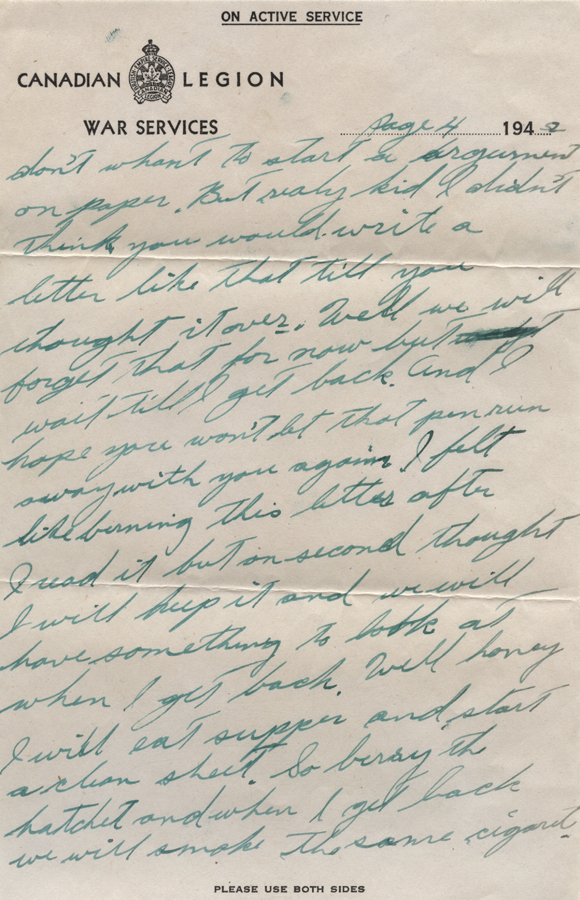 ON ACTIVE SERVICE
CANADIAN LEGION
WAR SERVICES
page 4 1942
don't whant to start a argument
on paper. But realy kid I didn't
think you would write a
letter like that till you
thought it over. Well we will
forget that for now but
wait till I get back. And I
hope you won't let that pen run
away with you again I felt
like berning this letter after
I read it but on second thought
I will keep it and we will
have something to look at
when I get back. Well honey
I will eat supper and start
a clean sheet. So berray the
hatchet and when I get back
we will smoke the same cigaret
PLEASE USE BOTH SIDES